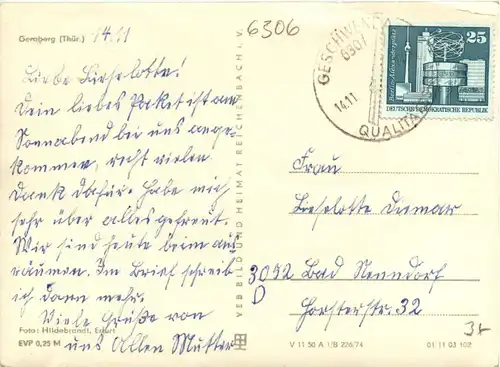 Gemberg (Thür.)
14.11
6306
Liebe Liselotte!
Dein liebes Paket ist am
Sonnabend bei uns ange-
kommen, recht vielen
Dank dafür. Habe mich
sehr über alles gefreut.
Wir sind heute beim aus-
räumen. Im Brief schreib
ich dann mehr.
Viele Grüße von
uns Allen Mutter
Foto: Hildebrandt, Erfurt
EVP 0,25 M
VEB BILD UND HEIMAT REICHENBACH I. V.
6307
14.11
QUALITÄ
25
DEUTSCHE DEMOKRATISCHE REPUBLIK
Frau
Lieselotte
3052 Bad Nenndorf
D
Horsterstr. 32
V 11 50 A 1/B 226/74
01 11 03 102